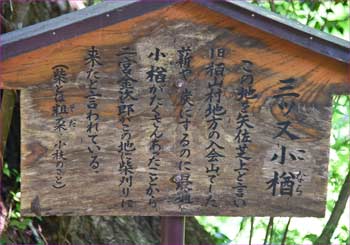 三ツ又小楢
なら
この地を矢佐芝山と言い
旧稲山村地方の入会山でした
薪や炭にするのに最適
小楢がたくさんあったことから
二宮金次郎がこの地に柴刈りに
来たと言われている。
（柴と粗朶・小枝のこと）
そだ